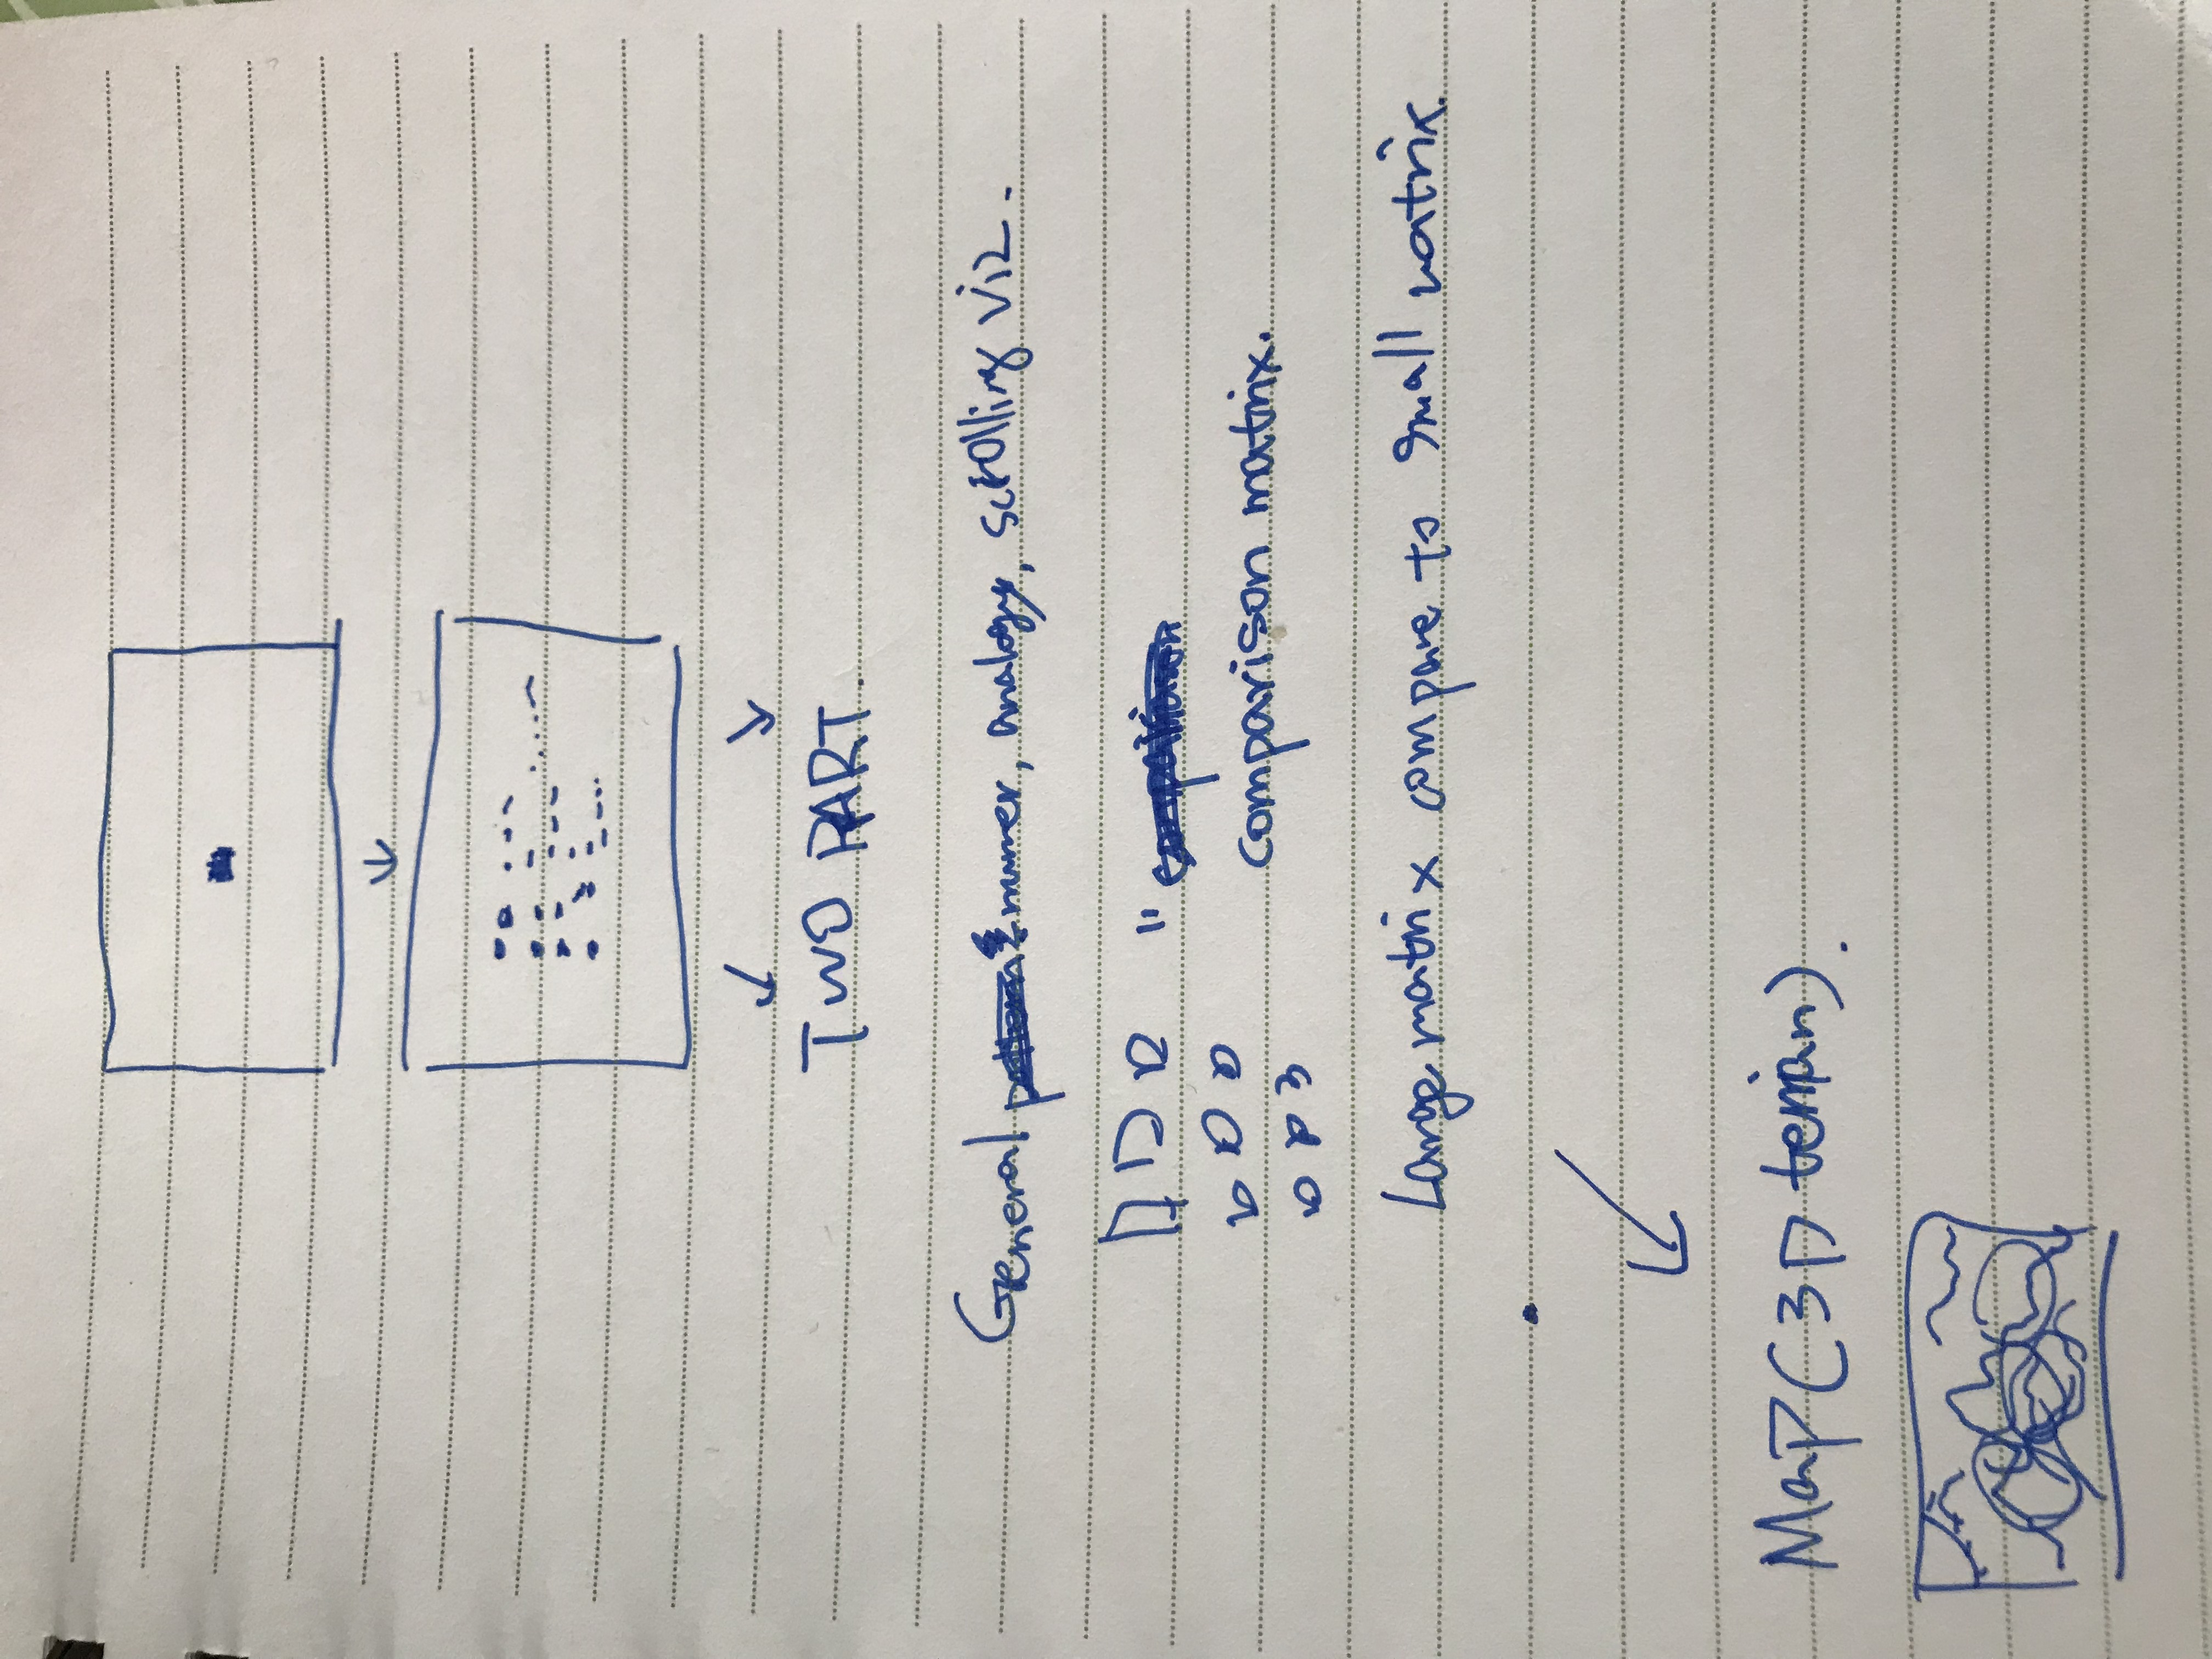 TWO PART.
General numer, analogy, scrolling viz.
"
comparison matrix.
Large matrix compare to small matrix.
Map (3D terrian).